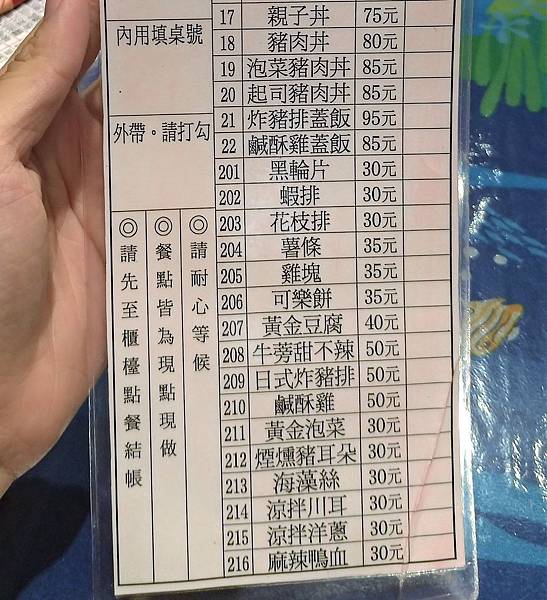 內用填桌號
外帶。請打勾
◎請耐心等候
◎餐點皆為現點現做
◎請先至櫃檯點餐結帳
17 親子丼 75元
18 豬肉丼 80元
19 泡菜豬肉丼 85元
20 起司豬肉丼 85元
21 炸豬排蓋飯 95元
22 鹹酥雞蓋飯 85元
201 黑輪片 30元
202 蝦排 30元
203 花枝排 30元
204 薯條 35元
205 雞塊 35元
206 可樂餅 35元
207 黃金豆腐 40元
208 牛蒡甜不辣 50元
209 日式炸豬排 50元
210 鹹酥雞 50元
211 黃金泡菜 30元
212 煙燻豬耳朵 30元
213 海藻絲 30元
214 涼拌川耳 30元
215 涼拌洋蔥 30元
216 麻辣鴨血 30元